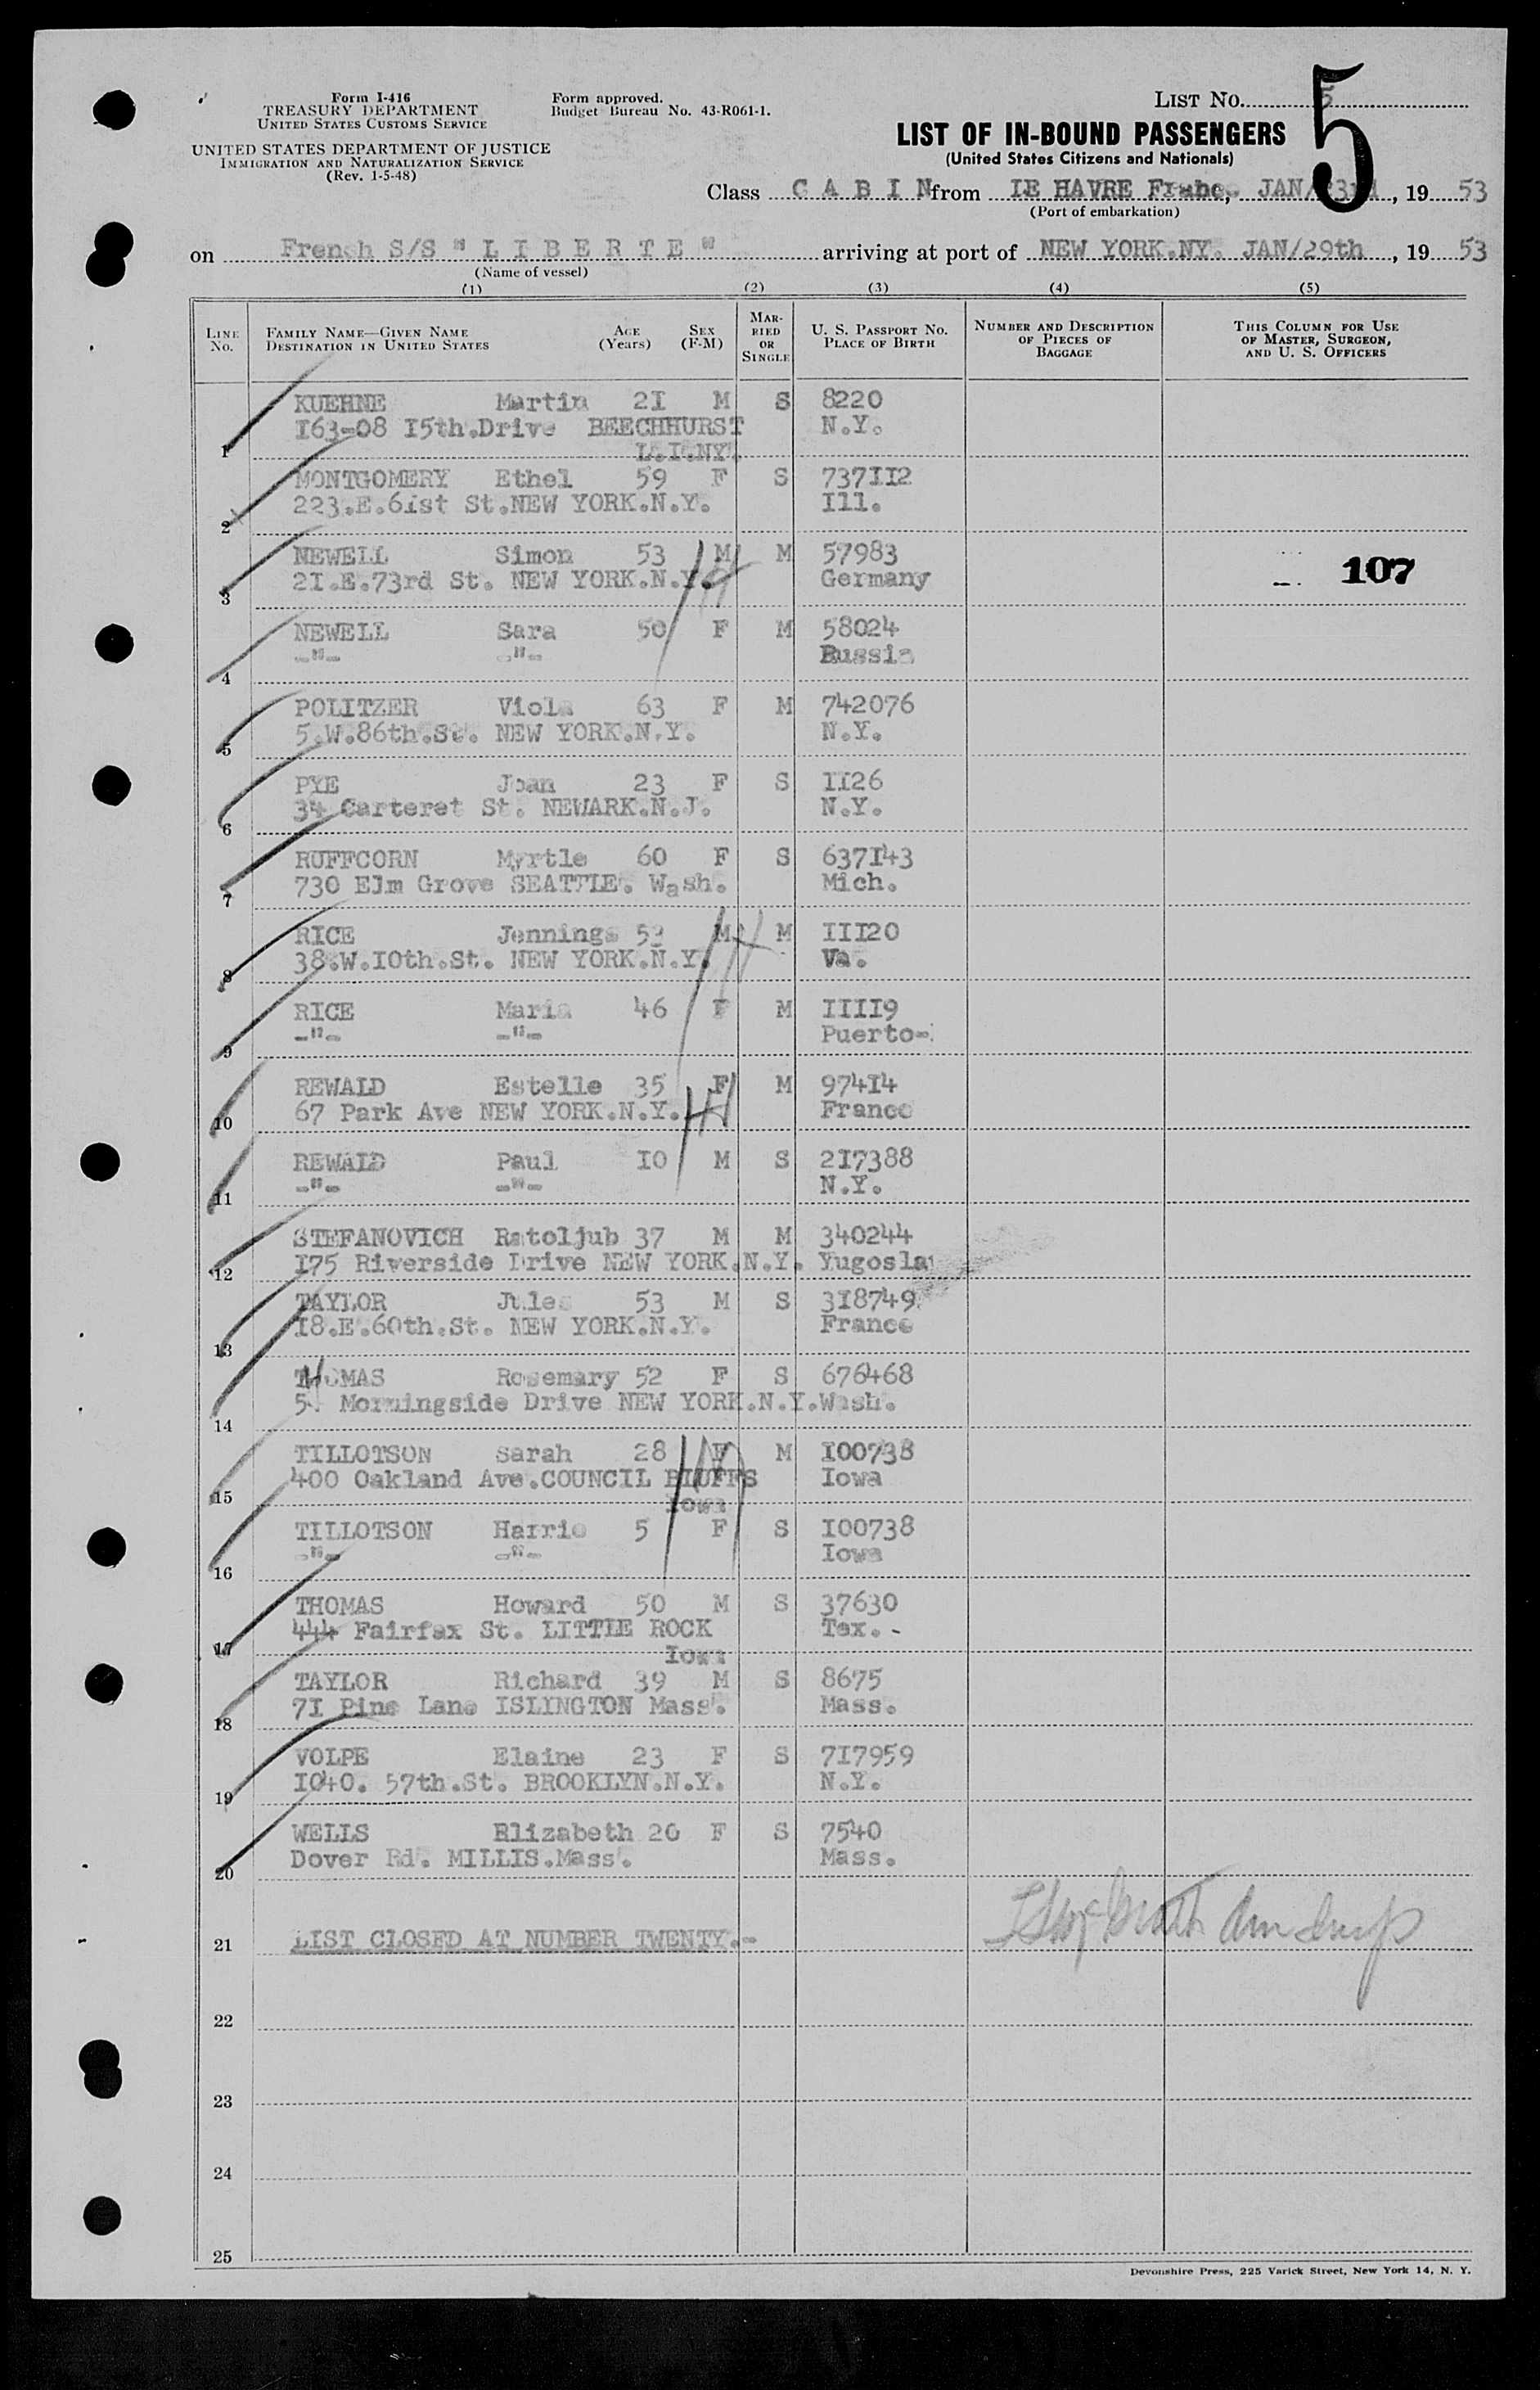 Form I-416
TREASURY DEPARTMENT
UNITED STATES CUSTOMS SERVICE
UNITED STATES DEPARTMENT OF JUSTICE
IMMIGRATION AND NATURALIZATION SERVICE
(Rev. 1-5-48)
Form approved.
Budget Bureau No. 43-R061-1.
LIST No. 5
5
LIST OF IN-BOUND PASSENGERS
(United States Citizens and Nationals)
Class C A B I N from LE HAVRE JAN/23rd, 19 53
(Port of embarkation)
on French S/S " L I B E R T E " arriving at port of NEW YORK.NY. JAN/29th, 19 53
(Name of vessel)
(1) (2) (3) (4) (5)
LINE No. FAMILY NAME—GIVEN NAME DESTINATION IN UNITED STATES AGE (Years) SEX (F-M) MARRIED OR SINGLE U. S. PASSPORT No. PLACE OF BIRTH NUMBER AND DESCRIPTION OF PIECES OF BAGGAGE THIS COLUMN FOR USE OF MASTER, SURGEON, AND U. S. OFFICERS
KUEHNE Martin 2I M S 8220
1 I63-08 I5th.Drive BEECHHURST N.Y.
L.I.NY.
MONTGOMERY Ethel 59 F S 737II2
2 223.E.6Ist St.NEW YORK.N.Y. Ill.
NEWELL Simon 53 M M 57983
3 2I.E.73rd St. NEW YORK.N.Y. Germany 107
NEWELL Sara 50 F M 58024
4 -"- -"- Russia
POLITZER Viola 63 F M 742076
5 5.W.86th.St. NEW YORK.N.Y. N.Y.
PYE Joan 23 F S II26
6 34 Carteret St. NEWARK.N.J. N.Y.
RUFFCORN Myrtle 60 F S 637I43
7 730 Elm Grove SEATTLE. Wash. Mich.
RICE Jennings 53 M M III20
8 38.W.I0th.St. NEW YORK.N.Y. Va.
RICE Maria 46 F M IIII9
9 -"- -"- Puerto-
REWALD Estelle 35 F M 974I4
10 67 Park Ave NEW YORK.N.Y. France
REWALD Paul I0 M S 2I7388
11 -"- -"- N.Y.
STEFANOVICH Ratoljub 37 M M 340244
12 I75 Riverside Drive NEW YORK.N.Y. Yugosla
TAYLOR Jules 53 M S 3I8749
13 I8.E.60th.St. NEW YORK.N.Y. France
THOMAS Rosemary 52 F S 676468
14 54 Morningside Drive NEW YORK.N.Y. Wash.
TILLOTSON Sarah 28 F M I00738
15 400 Oakland Ave.COUNCIL BLUFFS Iowa
Iowa
TILLOTSON Harrie 5 F S I00738
16 -"- -"- Iowa
THOMAS Howard 50 M S 37630
17 444 Fairfax St. LITTLE ROCK Tex.-
Iowa
TAYLOR Richard 39 M S 8675
18 7I Pine Lane ISLINGTON Mass. Mass.
VOLPE Elaine 23 F S 7I7959
19 I040. 57th.St. BROOKLYN.N.Y. N.Y.
WELLS Elizabeth 20 F S 7540
20 Dover Rd. MILLIS.Mass. Mass.
21 LIST CLOSED AT NUMBER TWENTY.-
22
23
24
25
Devonshire Press, 225 Varick Street, New York 14, N. Y.